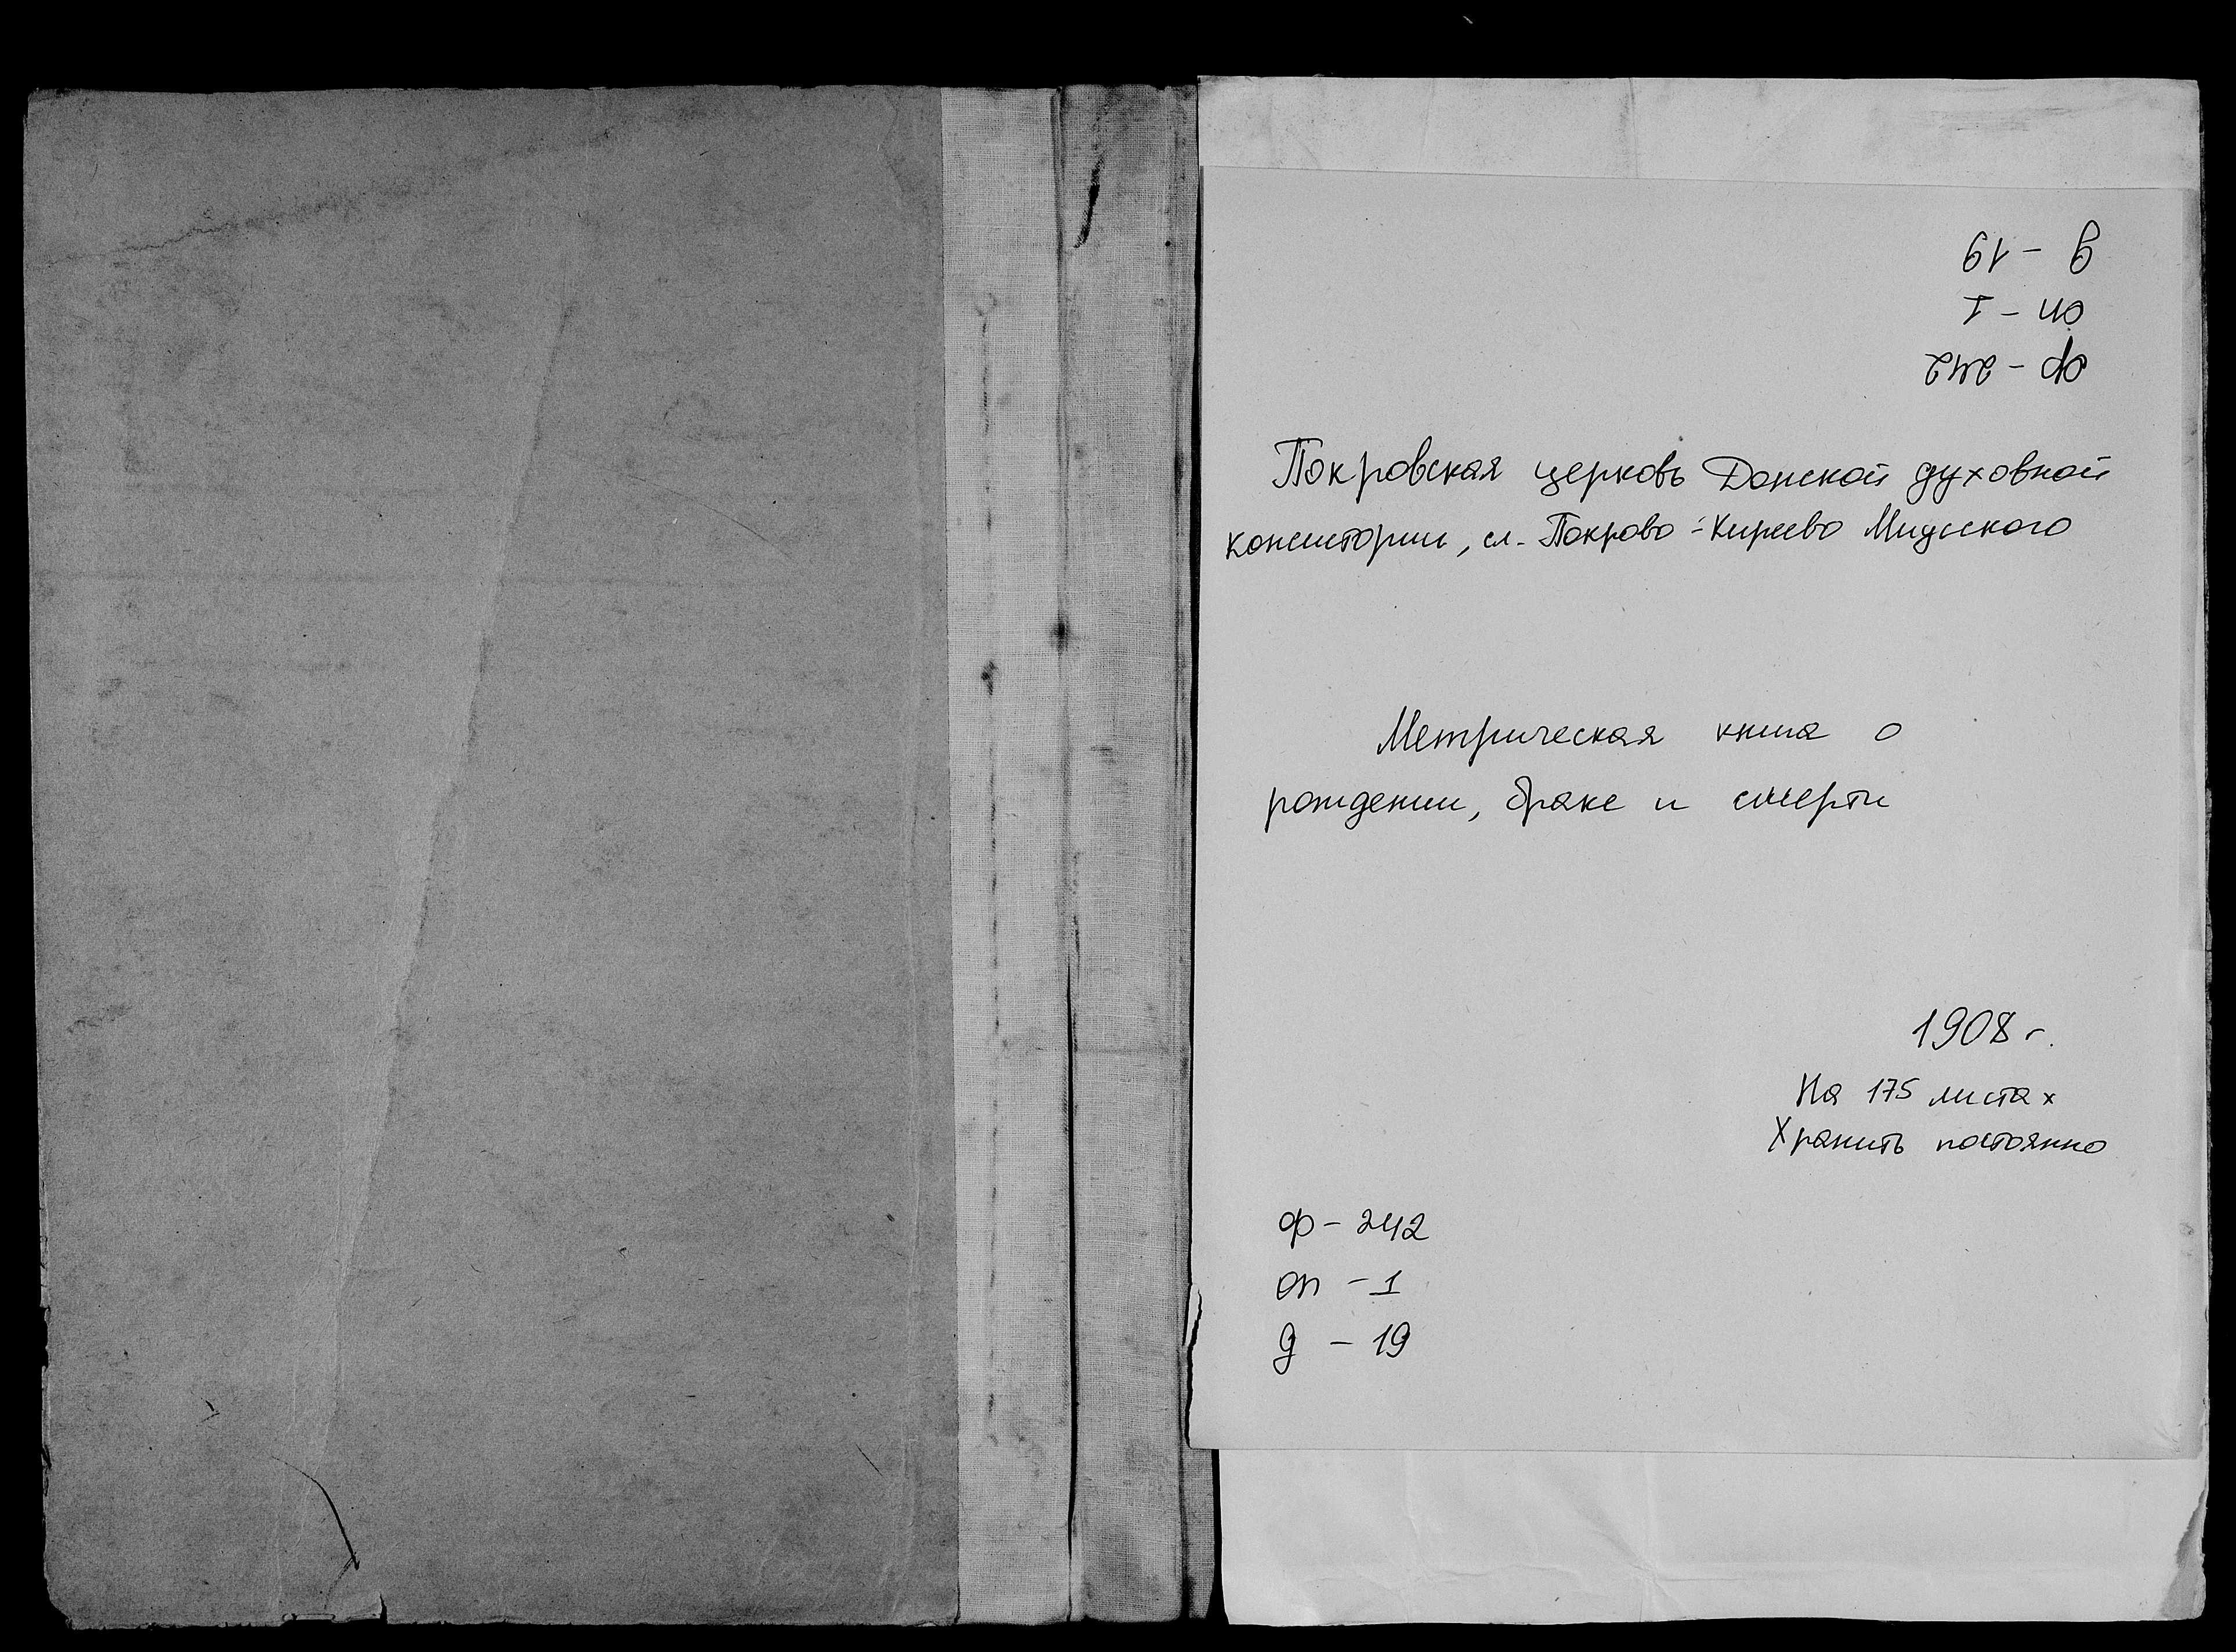 д - 19
оп - 1
ф - 242
Покровская церковь Донской духовной
консистории, сл. Покрово-Киреево Миусского
Метрическая книга о
рождении, браке и смерти
1908 г.
На 175 листах
Хранить постоянно
ф - 242
оп - 1
д - 19